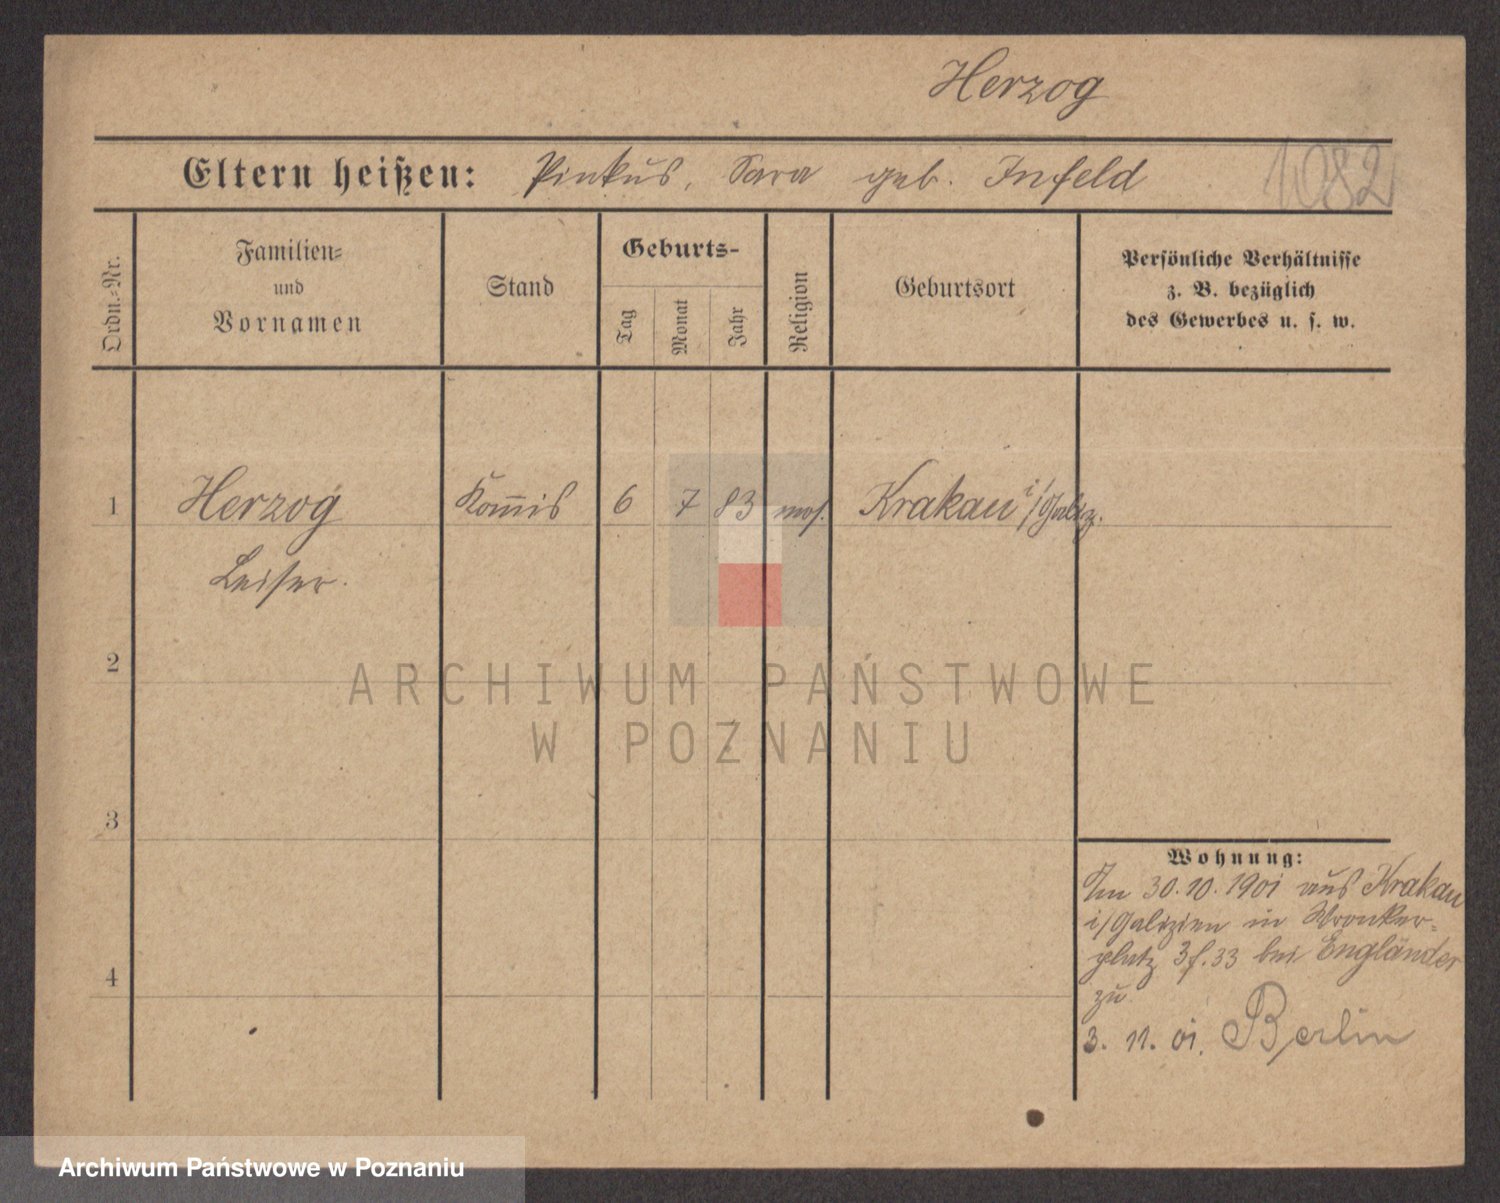 Herzog
Eltern heißen: Pinkus, Sara geb. Infeld
1082
Ordn.-Nr.
Familien-
und
Vornamen
Stand
Geburts-
Tag
Monat
Jahr
Religion
Geburtsort
Persönliche Verhältnisse
z. B. bezüglich
des Gewerbes u. s. w.
1 Herzog Kom̅is 6 7 83 mos. Krakau i/Galiz.
Leiser.
2
ARCHIWUM PAŃSTWOWE
W POZNANIU
3
Wohnung:
Am 30.10.1901 aus Krakau
i/Galizien in Wronker-
platz 3 f. 33 bei Engländer
zu
4
3. 11. 01. Berlin
Archiwum Państwowe w Poznaniu